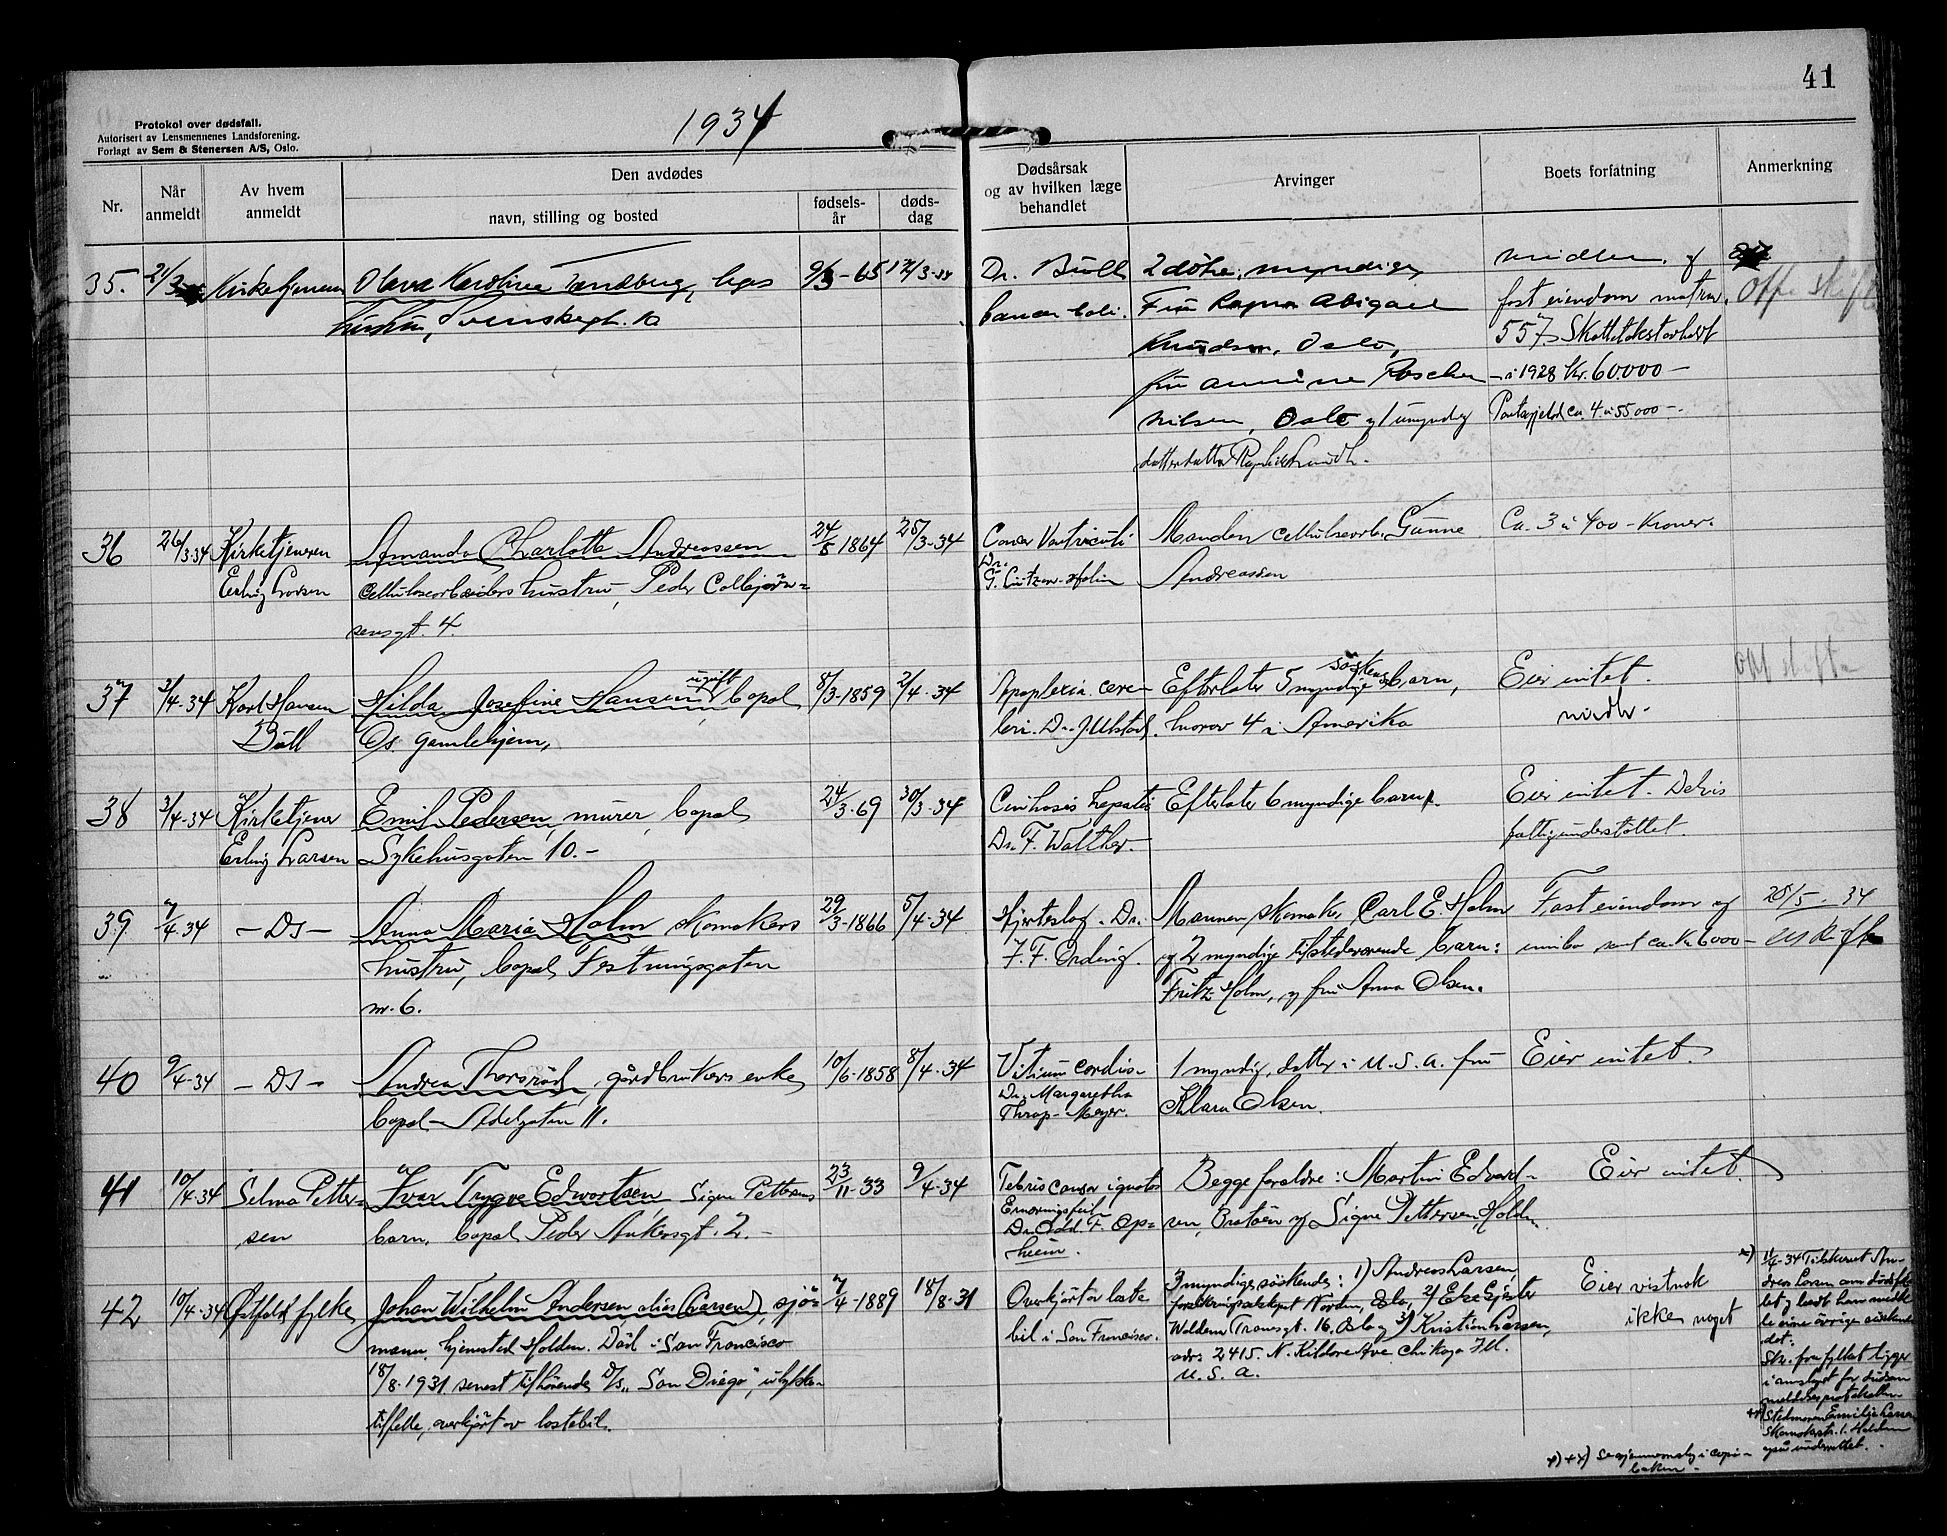 41
1934
Protokol over dødsfall.
Autorisert av Lensmennenes Landsforening.
Forlagt av Sem & Stenersen A/S, Oslo.
Nr.
Når anmeldt
Av hvem anmeldt
Den avdødes
navn, stilling og bosted
fødsels-år
døds-dag
Dødsårsak og av hvilken læge behandlet
Arvinger
Boets forfatning
Anmerkning
35.
21/3
Kirketjeneren
Olava Karoline Tandberg,
hustru, Svenskegt. 10
9/3-65
17/3-34
Dr. Büll
2 døtre, myndige,
Fru Ragna Abigael
Knudsen, Oslo,
fru Annine Roscher
Nilsen, Oslo og 1 umyndig
datterdatter
midler og
fast eiendom matr.nr.
557. Skattetakst
i 1928 Kr. 60.000 —
Pantegjeld ca. 4 à 55000 —.
Off. skifte
36
26/3-34
Kirketjeneren
Erling Larsen
Amanda Charlotte Andreassen
cellulosearbeiders hustru, Peder Colbjørn=
sensgt. 4.
24/8-1864
25/3-34
Cancer Ventriculi
Dr.
G. Lützow-Holm
Manden cellulosearb. Gunne
Andreassen
Ca. 3 à 400 - Kroner.
37
3/4-34
Karl Hansen
Büll
Hilda Josefine Hansen, ugift, bopæl
Os gamlehjem,
8/3-1859
2/4-34
Apoplexia cere-
bri. Dr. J. Ulstad.
Efterlater 5 myndige søskenbarn,
hvorav 4 i Amerika
Eier intet.
midler
Off skifte
38
3/4-34
Kirketjener
Erling Larsen
Emil Pedersen, murer, bopæl
Sykehusgaten 10. -
24/3-69
30/3-34
Cirrhosis hepatis
Dr. F. Walther. -
Efterlater 6 myndige barn.
Eier intet. Delvis
fattigunderstøttet.
39
7/4-34
- Ds -
Anna Maria Holm skomakers
hustru, bopæl Festningsgaten
nr. 6.
29/3-1866
5/4-34
Hjerteslag. Dr.
F. F. Ording.
Mannen, skomak. Carl E. Holm
og 2 myndige tilstedeværende barn:
Fritz Holm, og fru Anna Olsen.
Fast eiendom og
innbo samt ca. kr. 6000 -
25/5-34
uskifte
40
9/4-34
- Ds -
Andrea Thorsrød, gårdbrukers enke
bopæl - Adelgaten 11.
10/6-1858
8/4-34
Vitium cordis -
Dr. Margaretha
Thrap-Meyer.
1 myndig datter i U.S.A. fru
Klara Olsen.
Eier intet.
41
10/4-34
Selma Petter-
sen
Ivar Trygve Edvartsen, Signe Pettersens
barn, bopæl Peder Ankersgt. 2. -
23/11-33
9/4-34
Febris causa ignota
Ernæringsfeil
Dr. Odd. F. Op=
heim.
Begge foreldre: Martin Edvard-
sen, Bratøen og Signe Pettersen, Halden.
Eier intet.
42
10/4-34
Østfold fylke
Johan Wilhelm Andersen alias (Larsen), sjø=
mann, hjemsted Halden. Død i San Francisco
18/8-1931 senest tilhørende D/s „San Diego”, ulykkes-
tilfelle, overkjørt av lastebil.
7/4-1889
18/8-31
Overkjørt av laste
bil i San Francisco.
3 myndige søskende: 1) Andreas Larsen,
forsikringsselskapet Norden, Oslo, 2) Else Gjester
Waldem. Thranesgt. 16, Oslo og 3) Kristian Larsen,
adr: 2415. N. Kildare Ave Chikago Ill.
U.S.A.
Eier vistnok
ikke noget
x) 11/4-34 Tilskrevet An-
dreas Larsen om dødsfal-
let og bedt ham medde
le sine øvrige søskende
det.
Skr. fra fylket ligger
i omslaget for dødsan
meldelsesprotokollen
++) Stedmoren Emilie Larsen
Skomakerstr. 1. Halden
også underrettet.
+) ++) Se gjennemslag i kopi-
boken -